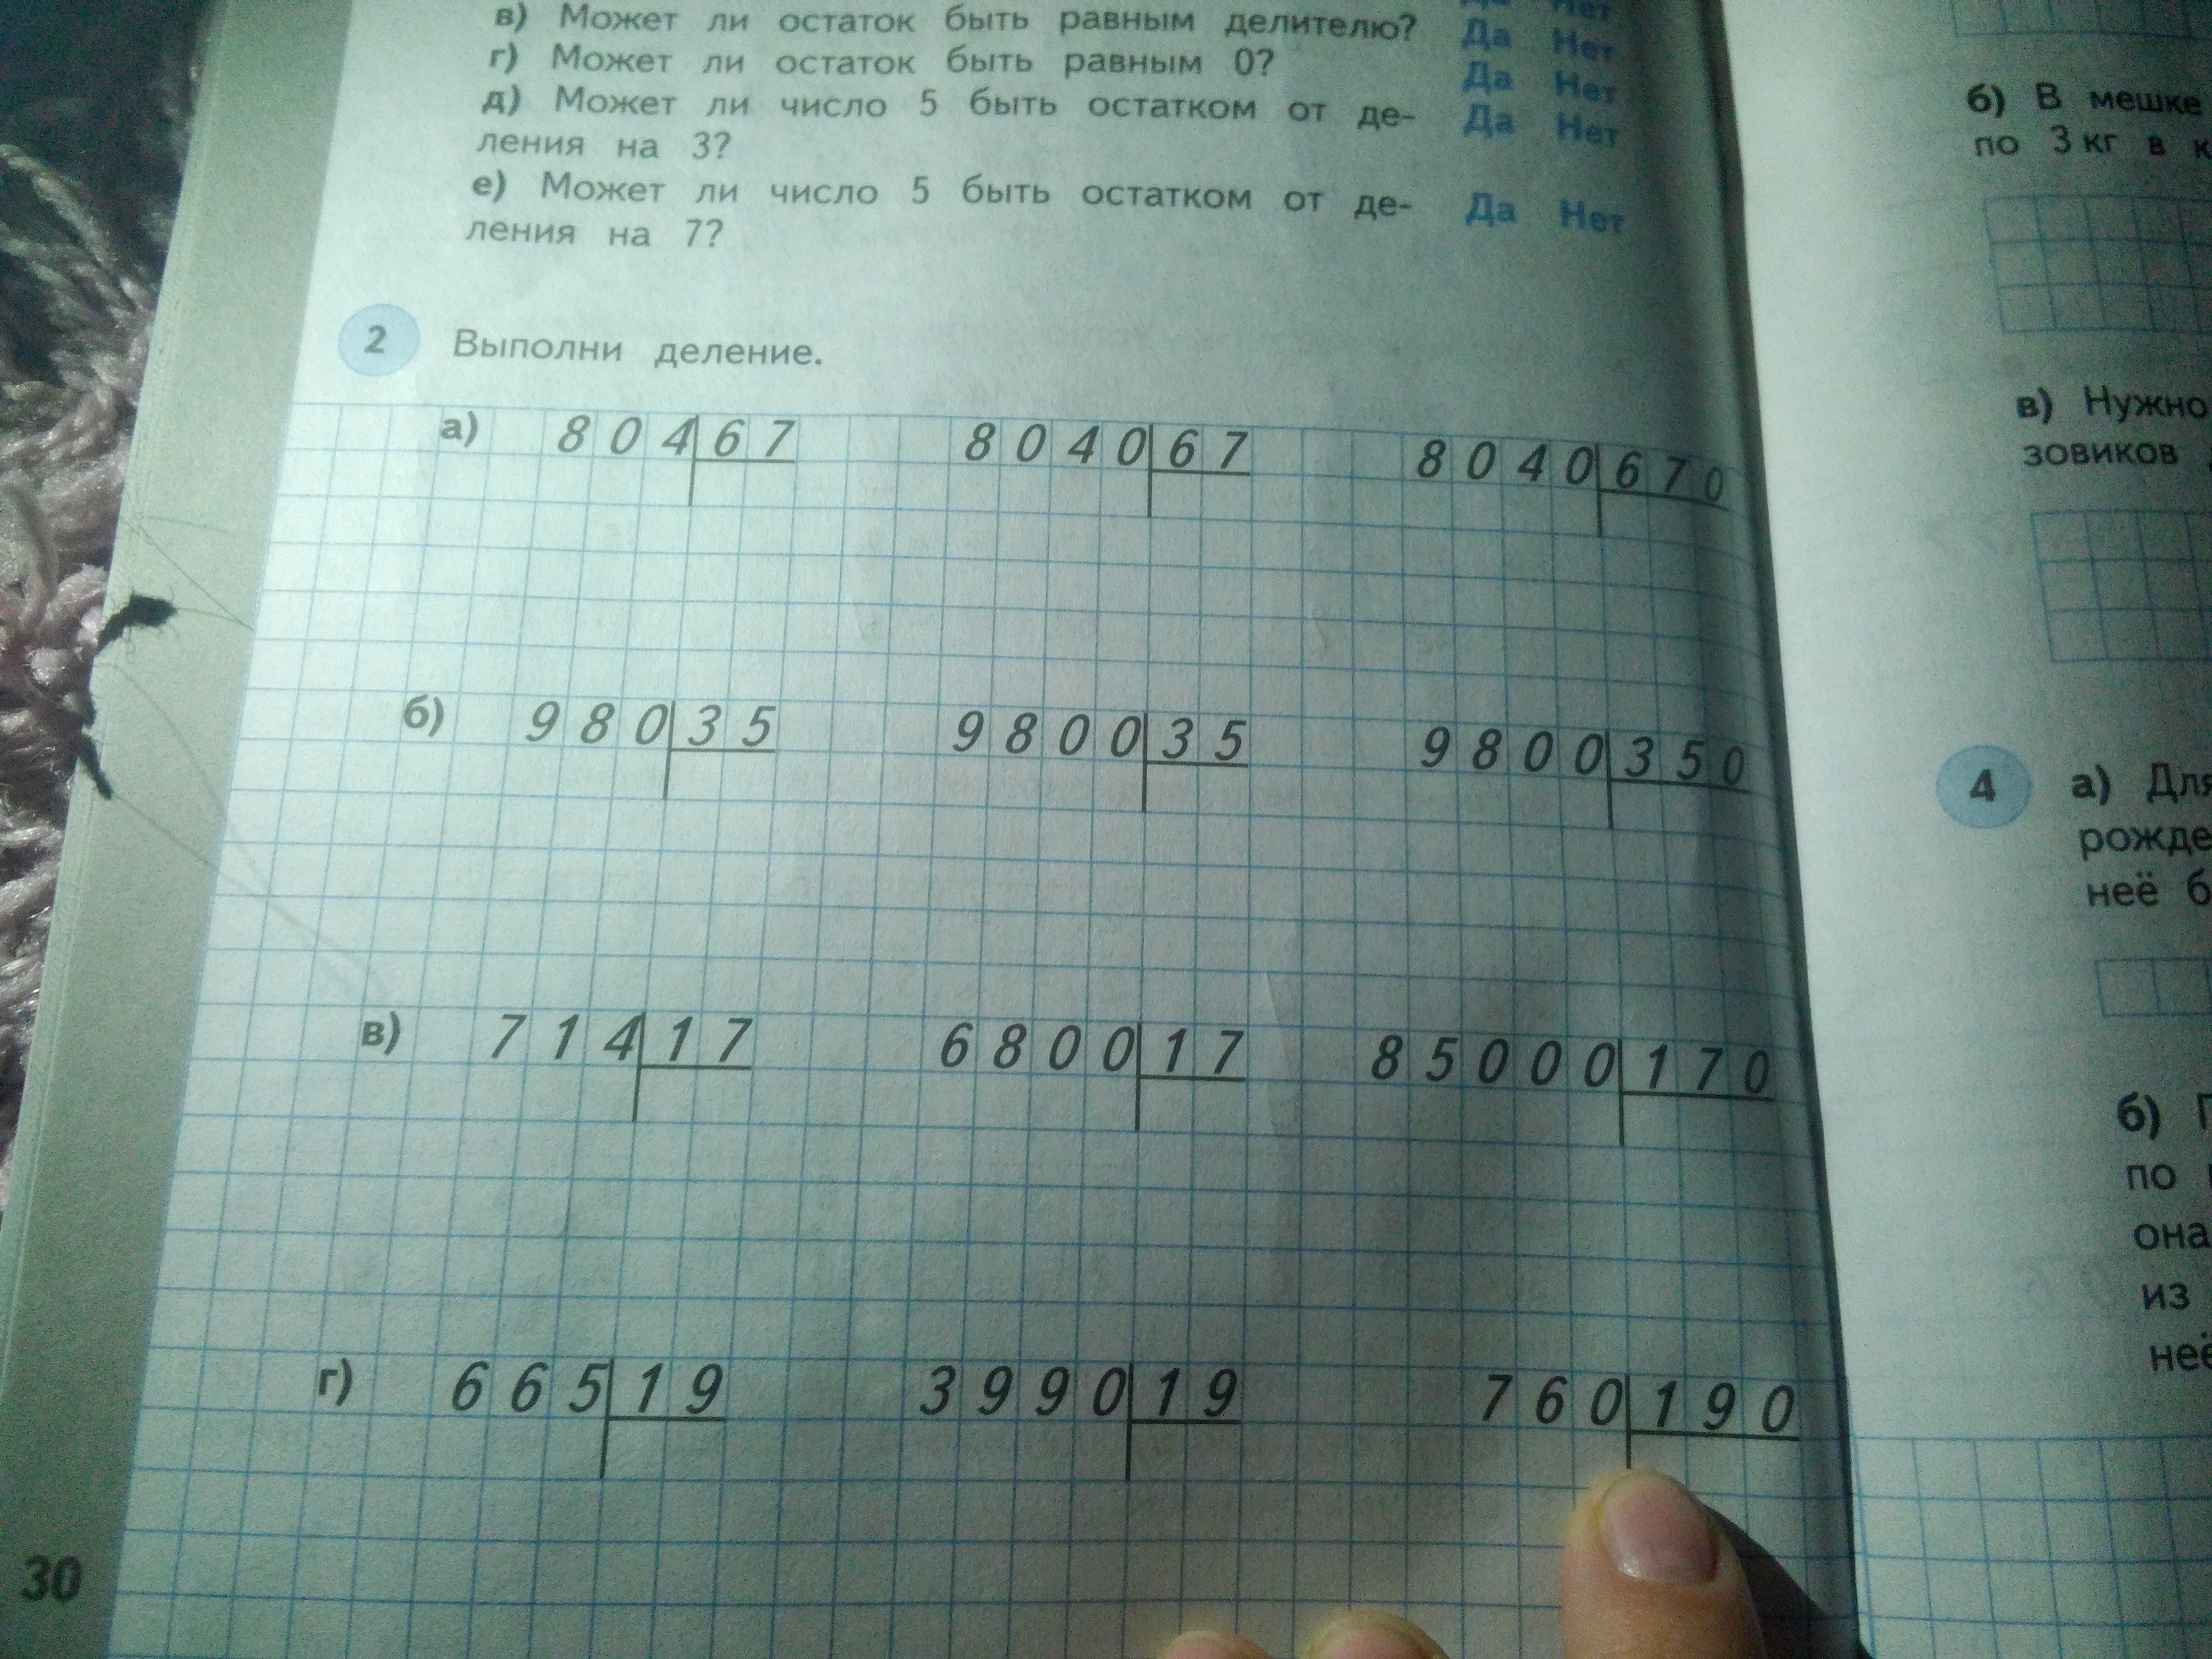 в) Может ли остаток быть равным делителю? Да Нет
г) Может ли остаток быть равным 0? Да Нет
д) Может ли число 5 быть остатком от де- Да Нет
ления на 3?
е) Может ли число 5 быть остатком от де- Да Нет
ления на 7?
2 Выполни деление.
а) 804 67 8040 67 8040 670
б) 980 35 9800 35 9800 350
в) 714 17 6800 17 85000 170
г) 665 19 3990 19 760 190
30
б) В мешке
по 3 кг в
в) Нужно
зовиков
4 а) Для
рожде
неё б
б)
по
она
из
неё